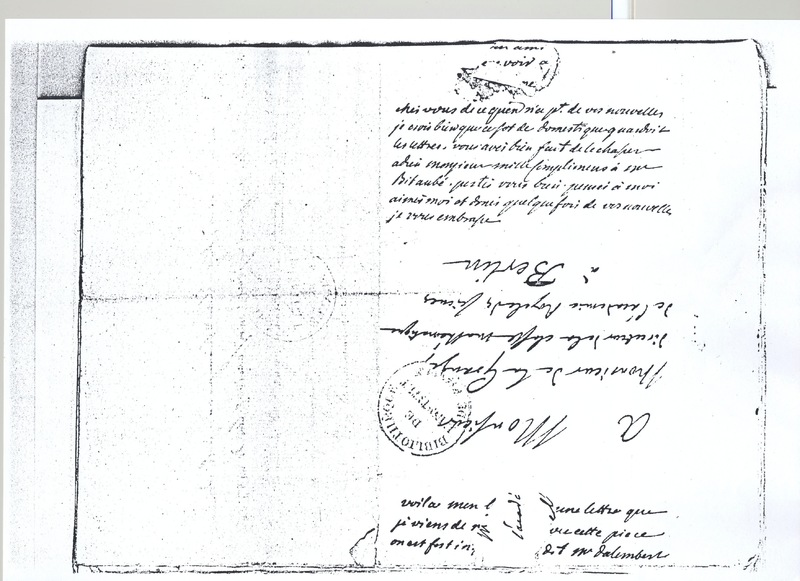 mon ami
voir à
chés vous de ce quen n'a pt. de vos nouvelles
je crois bien que ce sot de domestique gardoit
les lettres, vous avés bien fait de le chasser
adieu monsieur mille complimens à mr
Bitaubé. portés vous bien, pensés à moi
aimés moi et donés quelque fois de vos nouvelles
je vous embrasse
A Monsieur
Monsieur de la Grange,
directeur de la classe mathématique
de l'académie Royale des sciences
à Berlin
BIBLIOTHEQUE
DE
L'INSTITUT
voila mon
une lettre que
je viens de
cette piece
on est fort in
mr dalembert